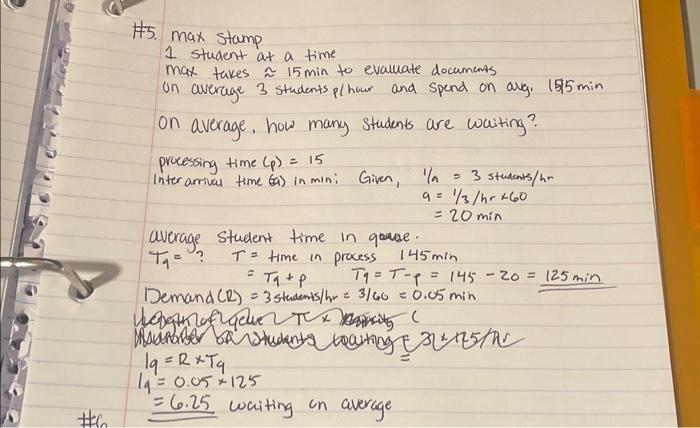 #5. max stamp
1 student at a time
max takes ≈ 15 min to evaluate documents
on average 3 students p/hour and spend on avg. min
on average, how many students are waiting?
processing time (p) = 15
Inter arrival time (a) in min: Given, 1/a = 3 students/hr
a = 1/3 /hr × 60
= 20 min
average student time in
Tq = ? T = time in process 145 min
= Tq + p Tq = T - p = 145 - 20 = 125 min
Demand (R) = 3 students/hr = 3/60 = 0.05 min
Iq = R × Tq
Iq = 0.05 × 125
= 6.25 waiting on average